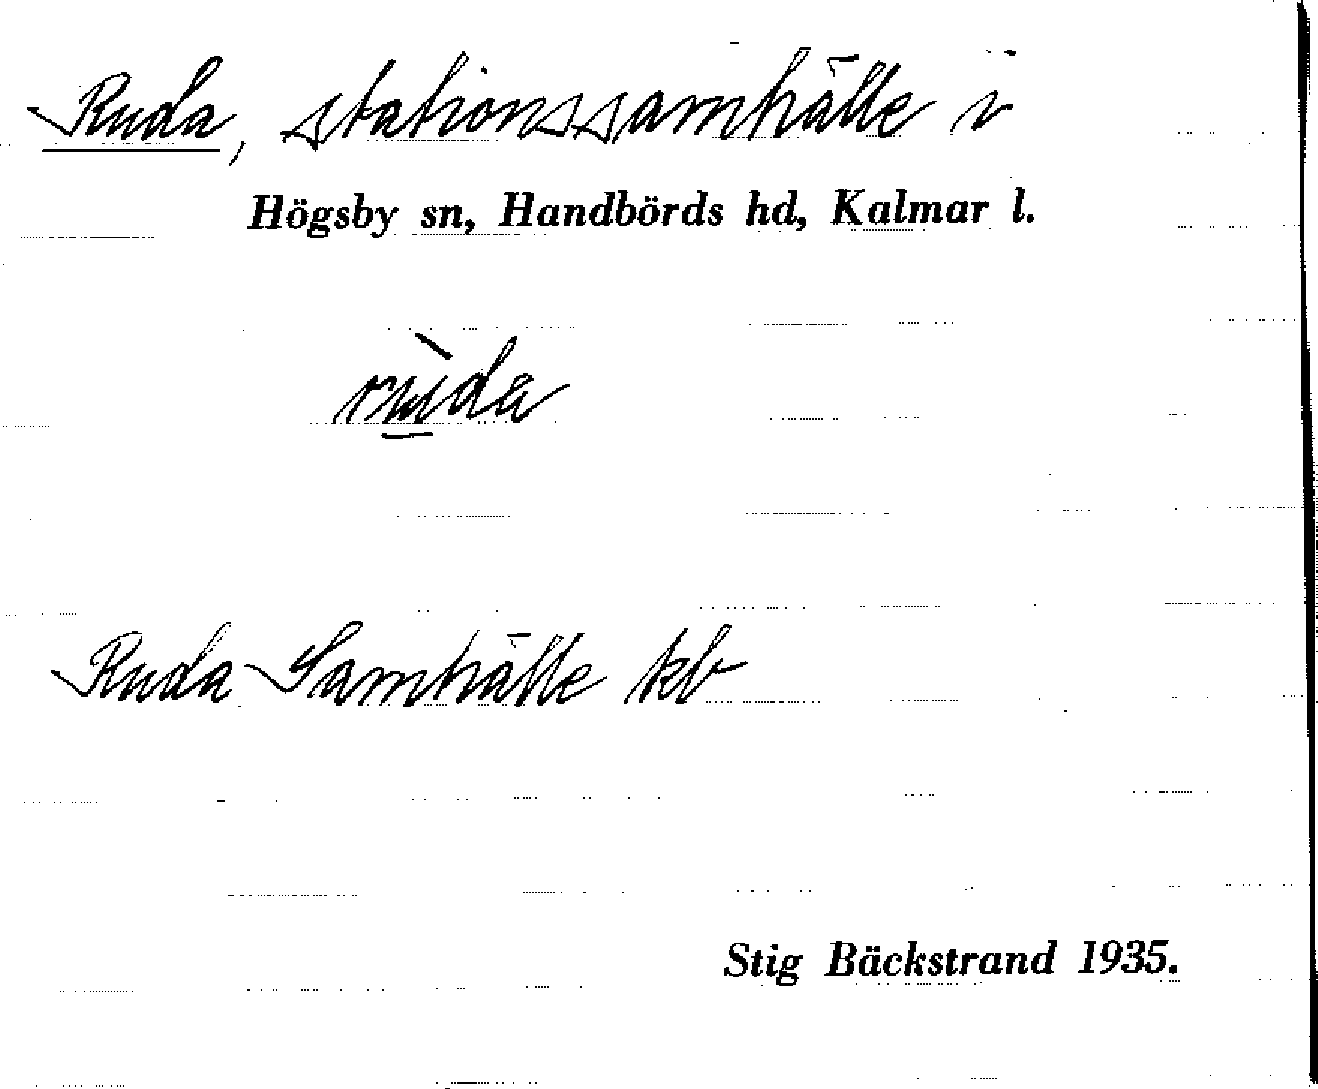 Ruda, stationssamhälle i
Högsby sn, Handbörds hd, Kalmar l.
rù̱da
Ruda Samhälle kb
Stig Bäckstrand 1935.